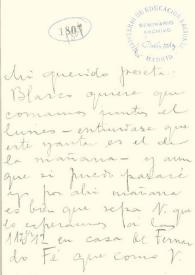 1807
MINISTERIO DE EDUCACIÓN NACIONAL
SEMINARIO
ARCHIVO
MADRID
Mi querido poeta:
Blasco quiere que
comamos juntos el
lunes - entiéndase que
este yanta es el de
la mañana - y aun
que si puedo pasaré
yo por ahí mañana
es bien que sepa V. que
le esperamos a las
11 ó 12 en casa de Fernan
do Fé que como V.